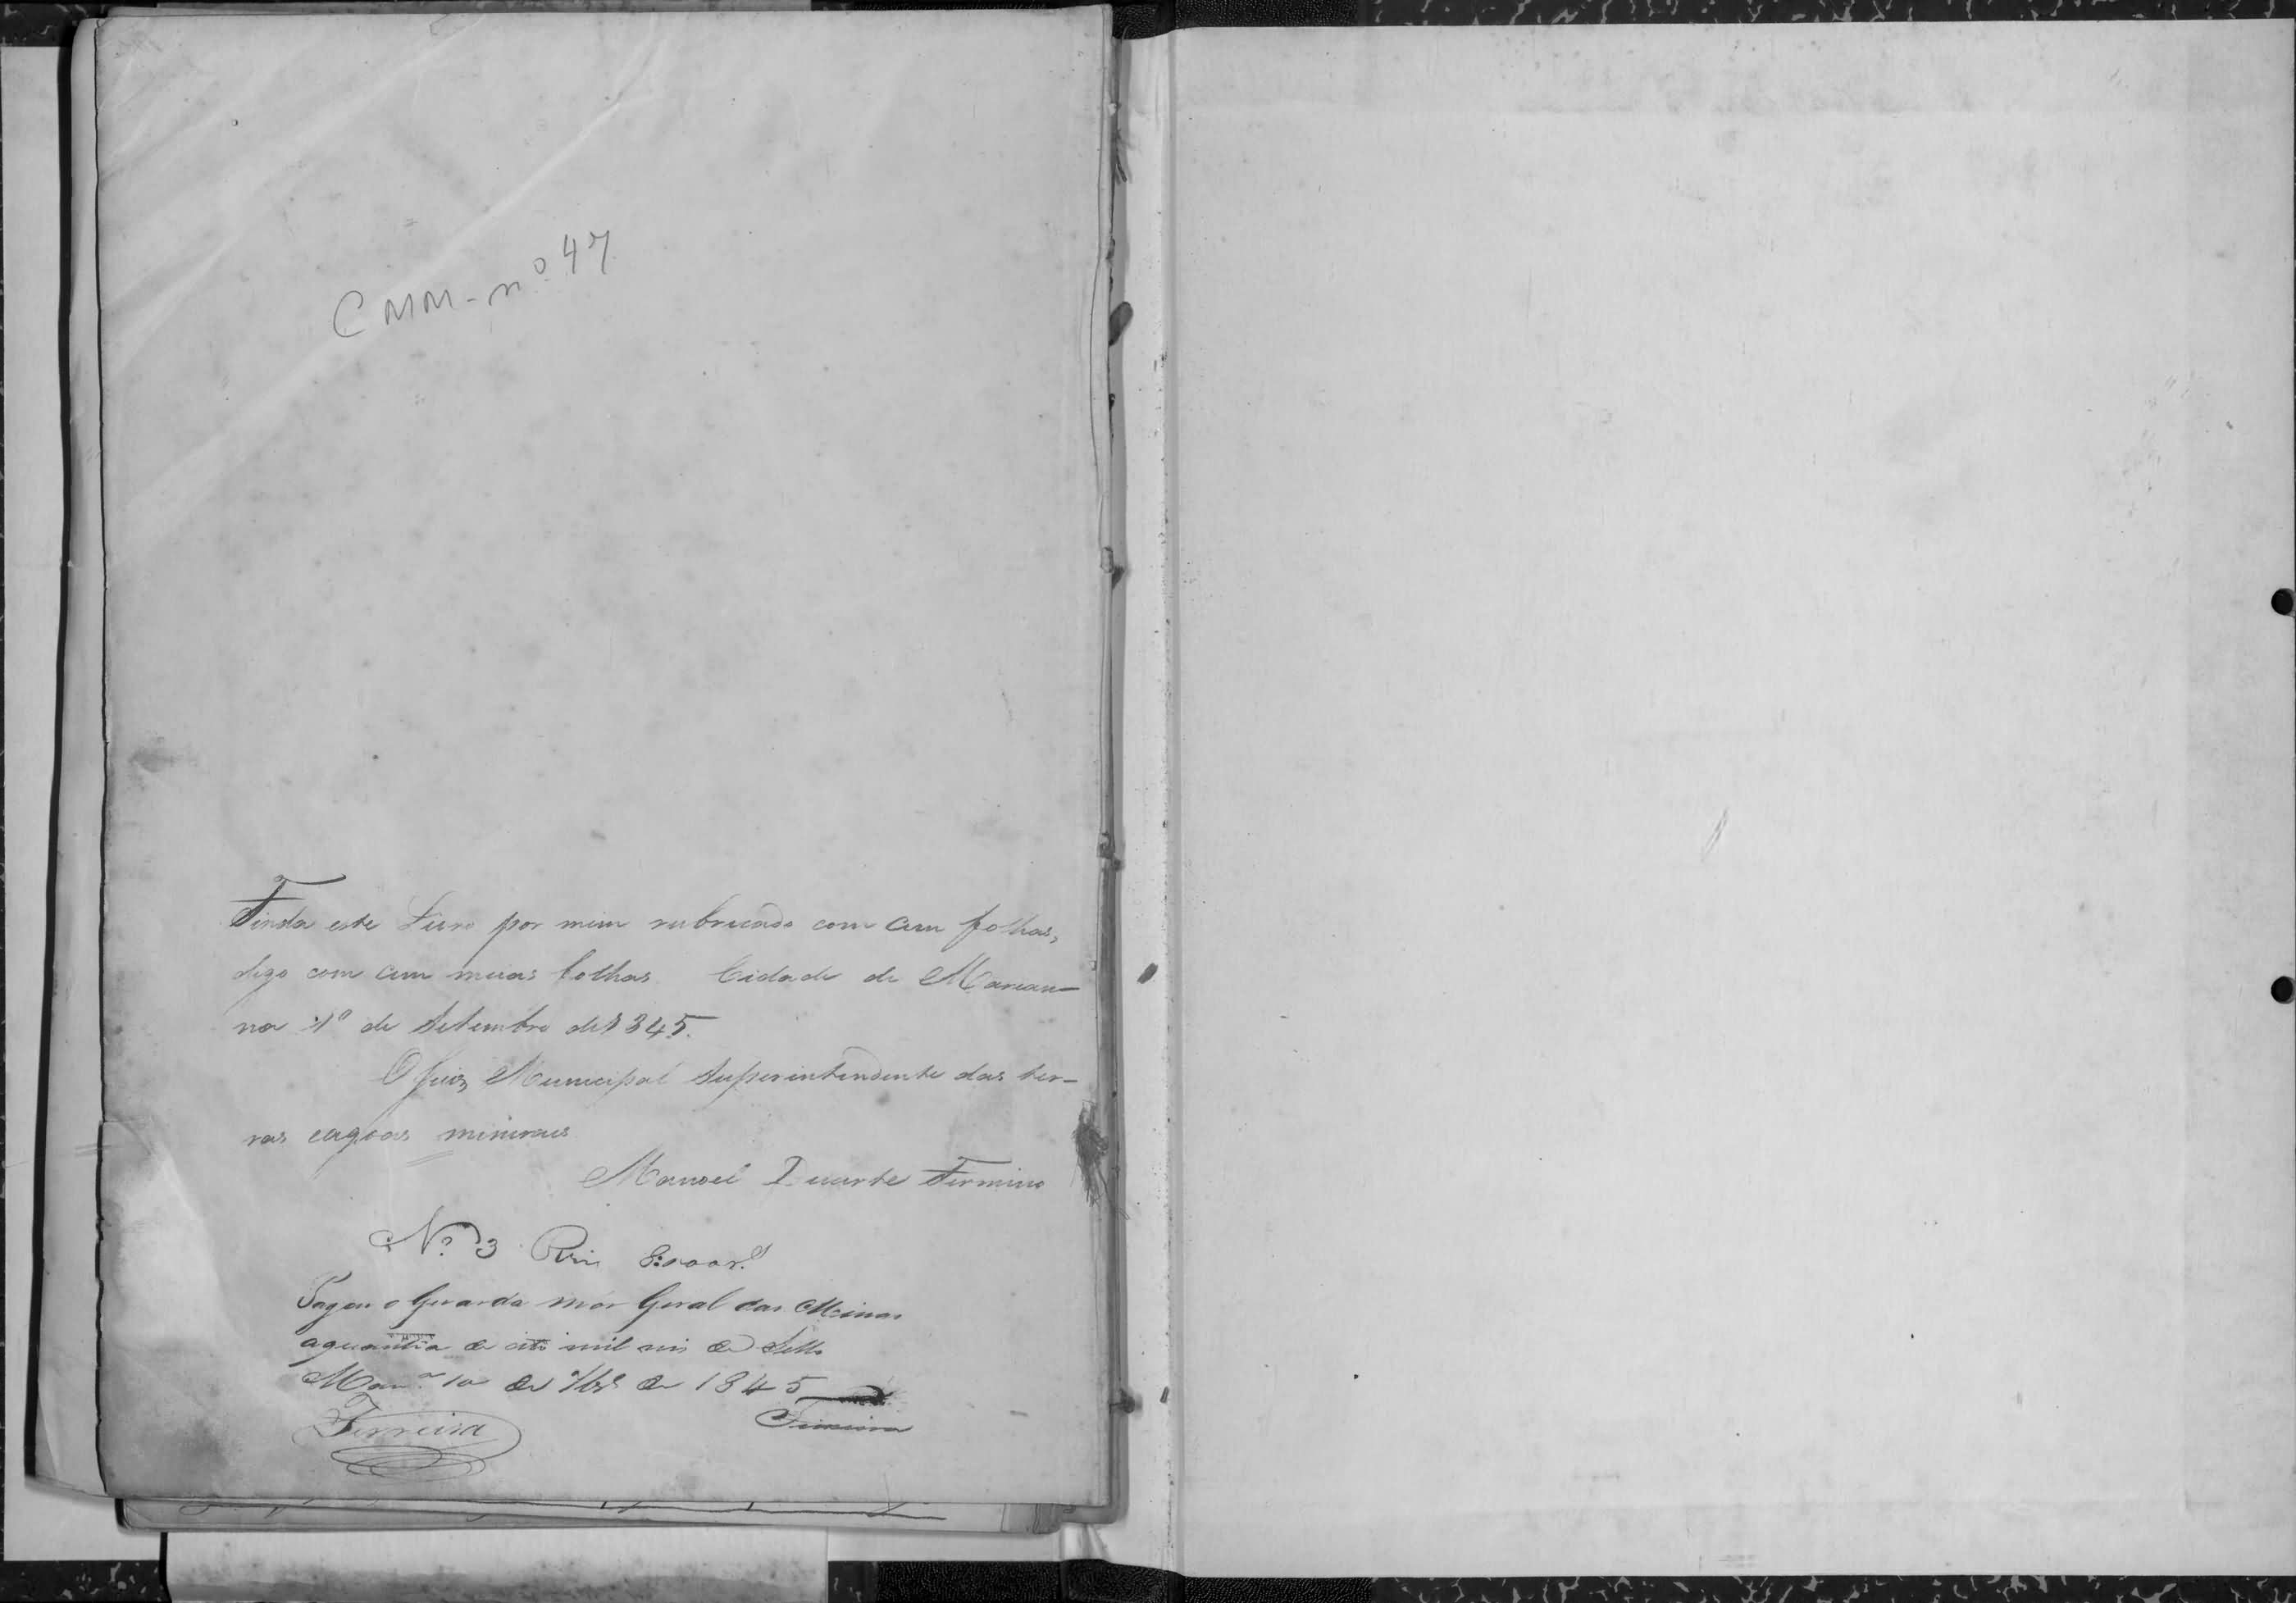 CMM - nº 47
Finda este Livro por mim rubricado com cem folhas,
digo com cem meias folhas. Cidade de Marian-
na 1º de Setembro de 1845.
O Juiz Municipal Superintendente das ter-
ras eagoas mineraes
Manoel Duarte Firmino
Nº 3 8:000 rs
Pagou o Guarda mór Geral das Minas
aquantia de oito mil reis de Sello
Marna 10 de 7bro de 1845
Ferreira